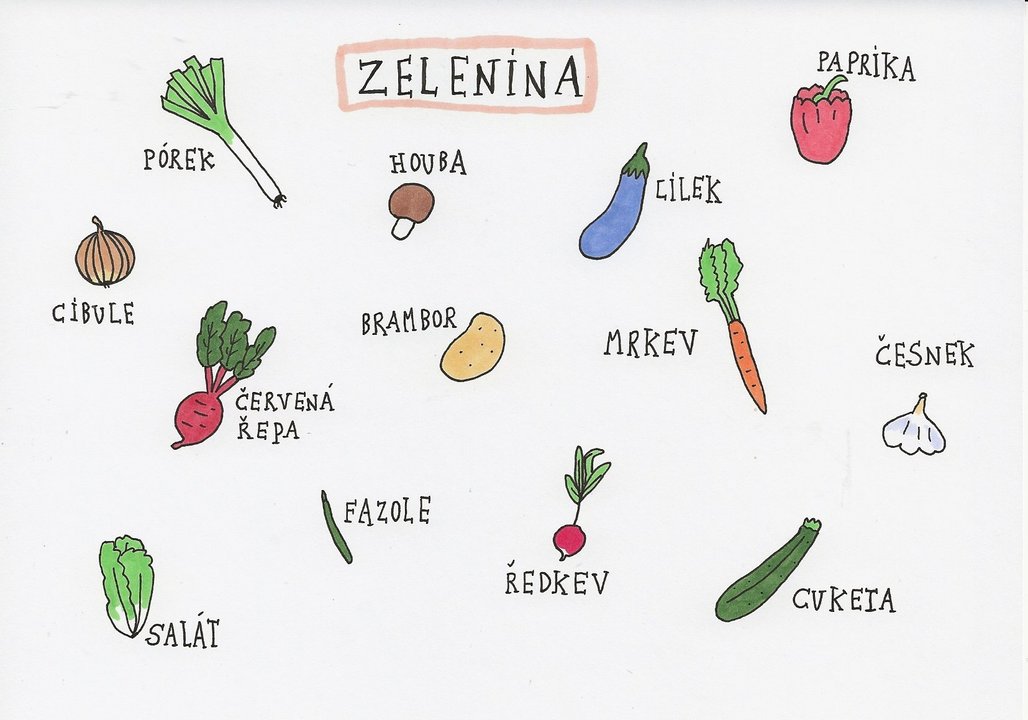 ZELENINA
PAPRIKA
PÓREK
HOUBA
LILEK
CIBULE
BRAMBOR
MRKEV
ČESNEK
ČERVENÁ
ŘEPA
FAZOLE
ŘEDKEV
CUKETA
SALÁT